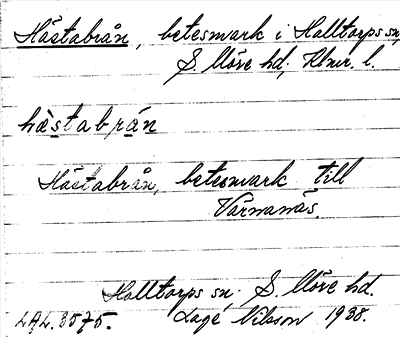 Hästabrån, betesmark i Halltorps sn,
S. Möre hd, Klmr. l.
hæ̀stabrán
Hästabrån, betesmark till
Värnanäs.
Halltorps sn, S. Möre hd.
LAL. 3575. Lage Nilsson 1938.